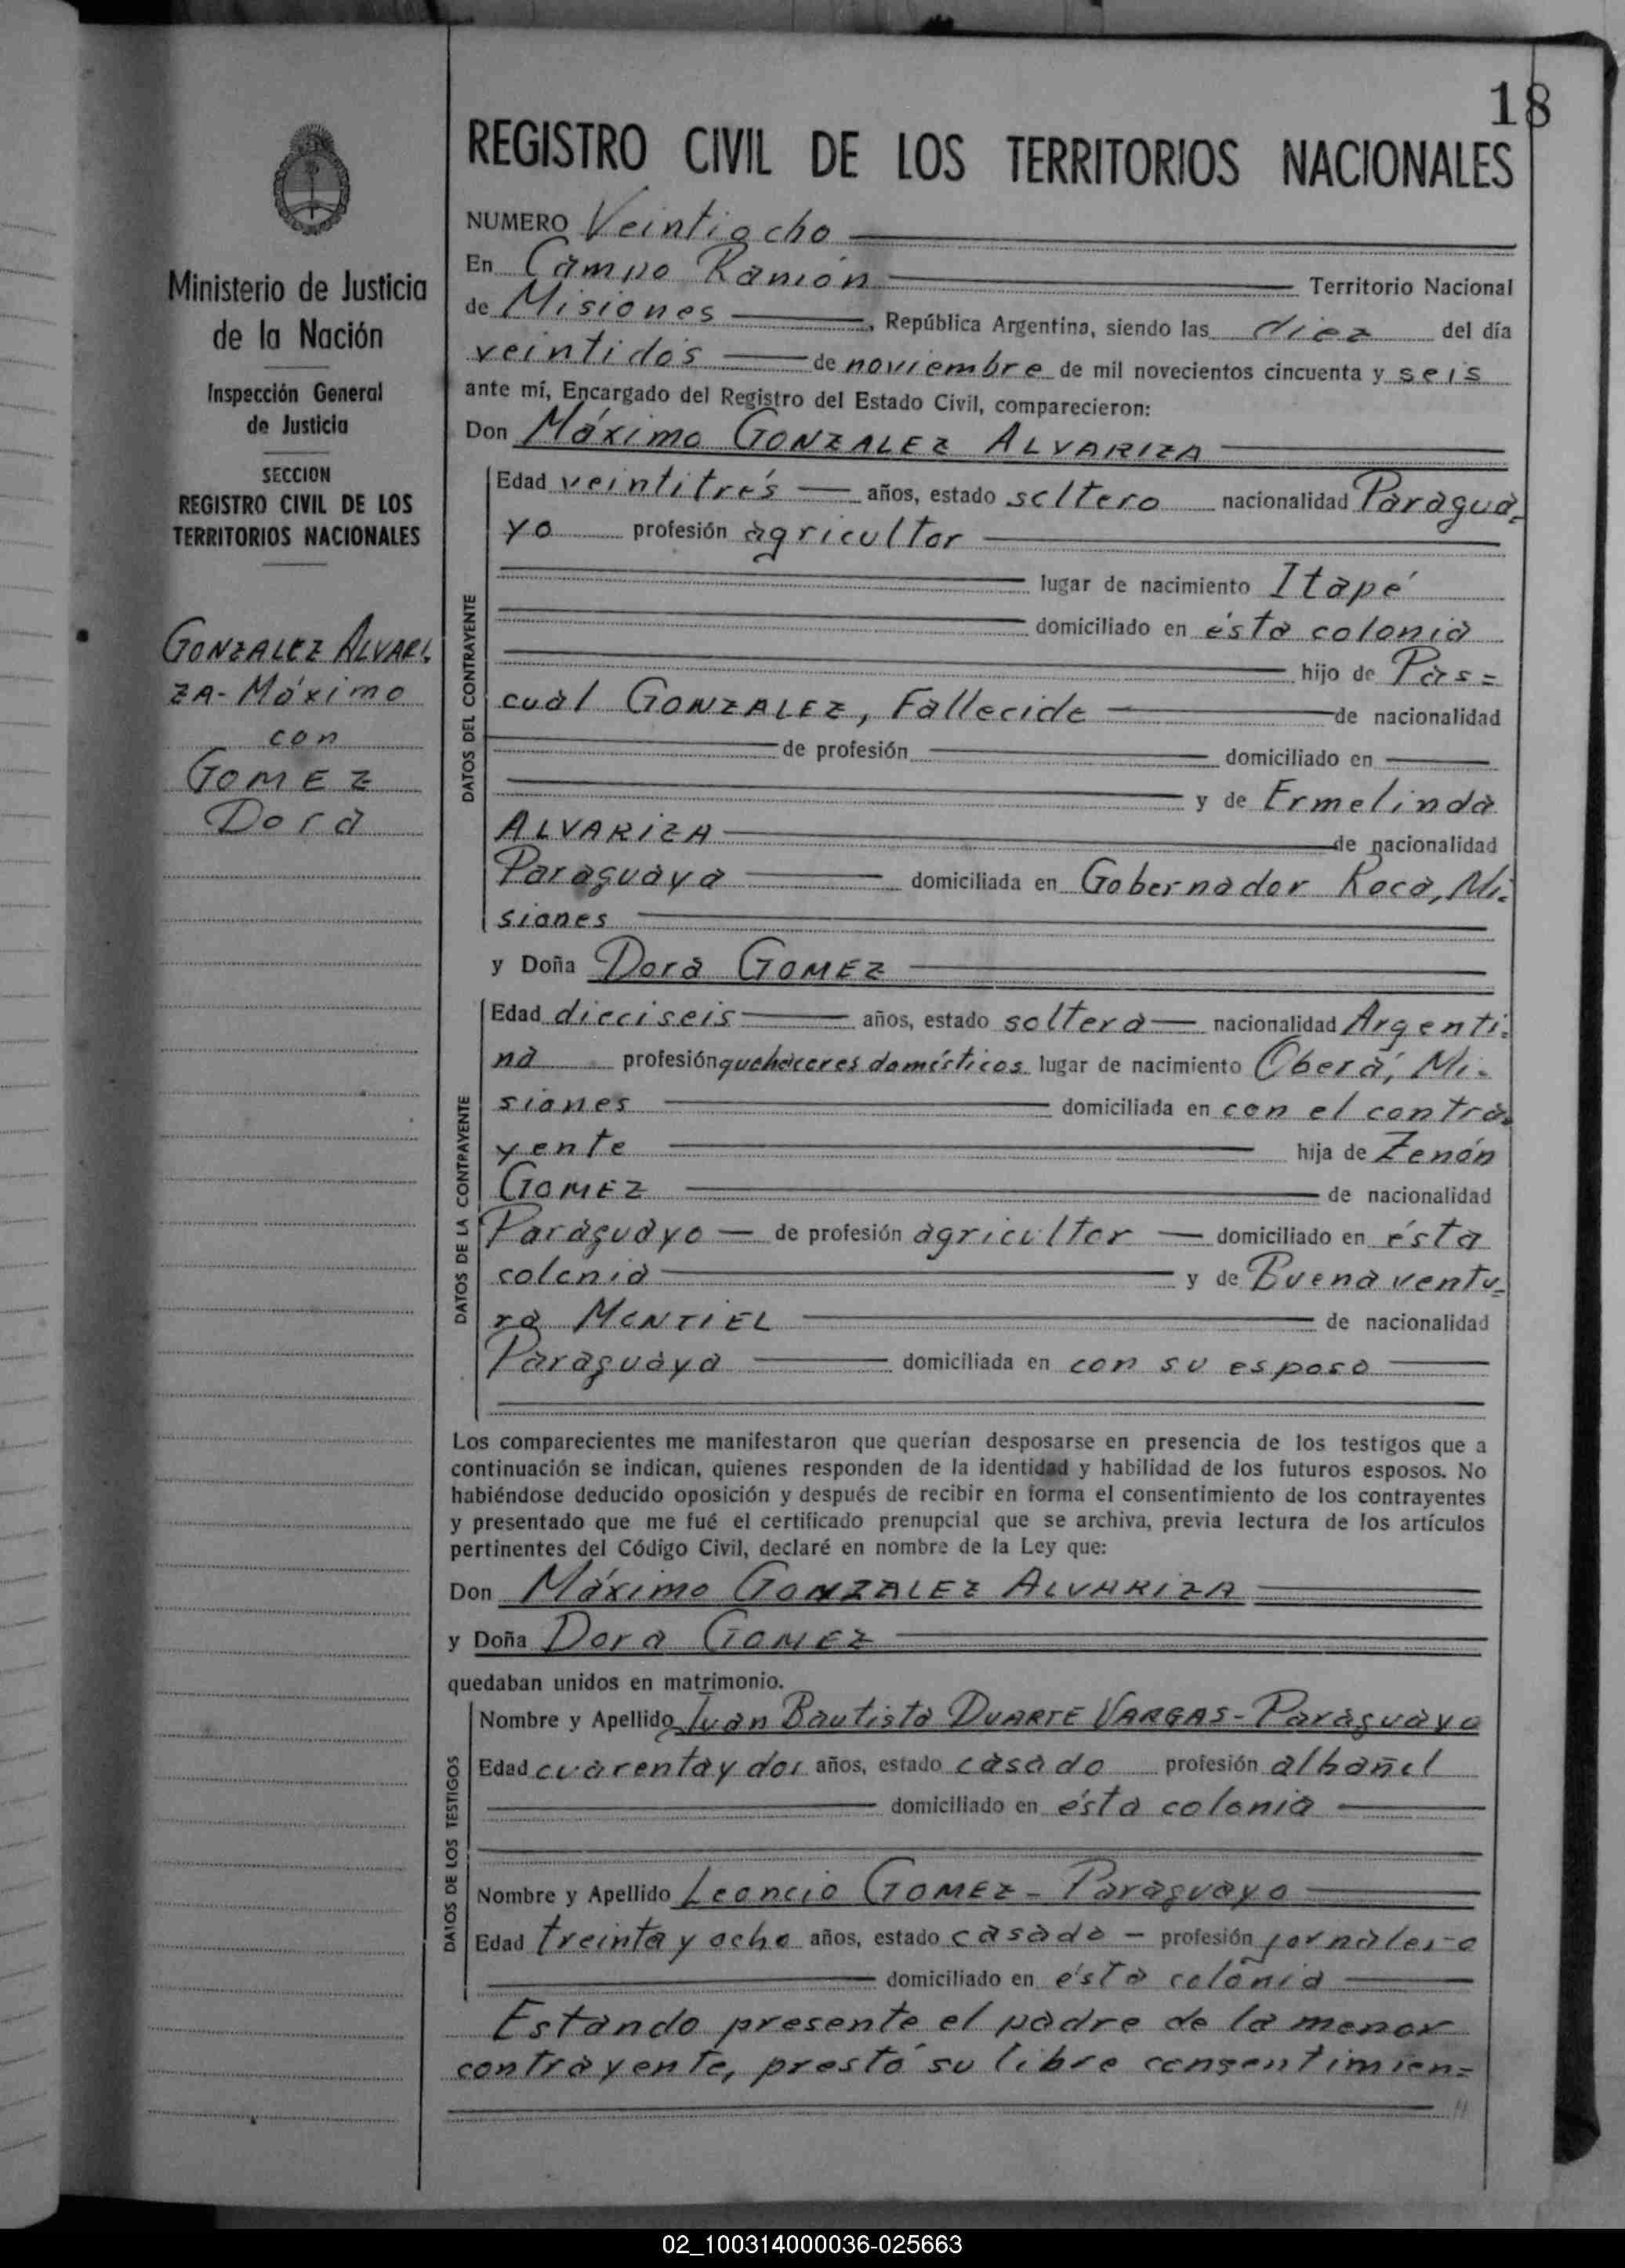 18
REGISTRO CIVIL DE LOS TERRITORIOS NACIONALES
Ministerio de Justicia
de la Nación
Inspección General
de Justicia
SECCION
REGISTRO CIVIL DE LOS
TERRITORIOS NACIONALES
GONZALEZ ALVARI
ZA - Máximo
con
GOMEZ
Dora
NUMERO Veintiocho
En Campo Ramón Territorio Nacional
de Misiones, República Argentina, siendo las diez del día
veintidós de noviembre de mil novecientos cincuenta y seis
ante mí, Encargado del Registro del Estado Civil, comparecieron:
Don Máximo GONZALEZ ALVARIZA
DATOS DEL CONTRAYENTE
Edad veintitrés años, estado soltero nacionalidad Paragua-
yo profesión agricultor
lugar de nacimiento Itapé
domiciliado en ésta colonia
hijo de Pas=
cual GONZALEZ, Fallecido de nacionalidad
de profesión domiciliado en
y de Ermelinda
ALVARIZA de nacionalidad
Paraguaya domiciliada en Gobernador Roca, Mi-
siones
y Doña Dora GOMEZ
DATOS DE LA CONTRAYENTE
Edad dieciseis años, estado soltera nacionalidad Argenti-
na profesión quehaceres domésticos lugar de nacimiento Oberá, Mi-
siones domiciliada en con el contra-
yente hija de Zenón
GOMEZ de nacionalidad
Paraguayo de profesión agricultor domiciliado en ésta
colonia y de Buenaventu=
ra MONTIEL de nacionalidad
Paraguaya domiciliada en con su esposo
Los comparecientes me manifestaron que querían desposarse en presencia de los testigos que a
continuación se indican, quienes responden de la identidad y habilidad de los futuros esposos. No
habiéndose deducido oposición y después de recibir en forma el consentimiento de los contrayentes
y presentado que me fué el certificado prenupcial que se archiva, previa lectura de los artículos
pertinentes del Código Civil, declaré en nombre de la Ley que:
Don Máximo GONZALEZ ALVARIZA
y Doña Dora GOMEZ
quedaban unidos en matrimonio.
DATOS DE LOS TESTIGOS
Nombre y Apellido Juan Bautista DUARTE VARGAS - Paraguayo
Edad cuarenta y dos años, estado casado profesión albañil
domiciliado en ésta colonia
Nombre y Apellido Leoncio GOMEZ - Paraguayo
Edad treinta y ocho años, estado casado - profesión jornalero
domiciliado en ésta colonia
Estando presente el padre de la menor
contrayente, prestó su libre consentimien=
02_100314000036-025663